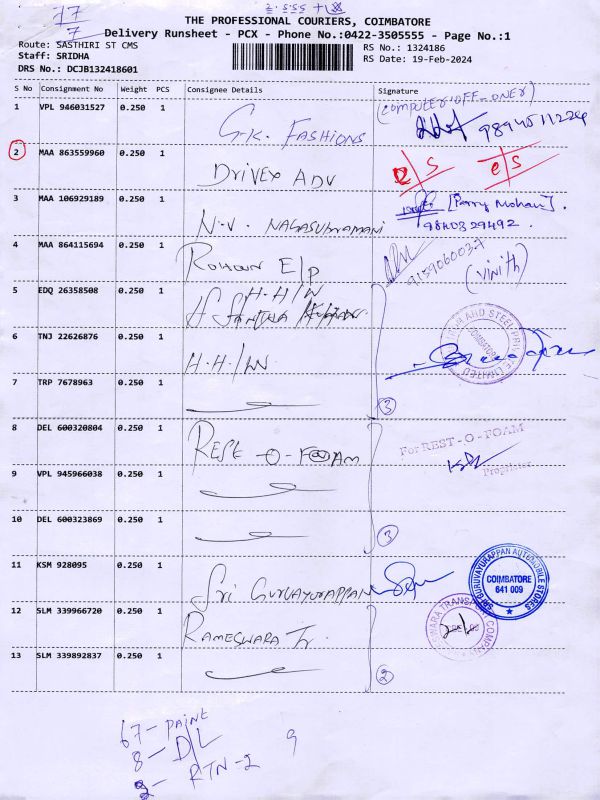 17
7
THE PROFESSIONAL COURIERS, COIMBATORE
Delivery Runsheet - PCX - Phone No.:0422-3505555 - Page No.:1
Route: SASTHIRI ST CMS
Staff: SRIDHA
DRS No.: DCJB132418601
RS No.: 1324186
RS Date: 19-Feb-2024
S No Consignment No Weight PCS Consignee Details Signature
1 VPL 946031527 0.250 1 G.K. FASHIONS (COMPUTER OFF-ONER) 9894511224
2 MAA 863559960 0.250 1 DRIVEX ADV
3 MAA 106929189 0.250 1 N.V. NAGASUBRAMANI [Parry Mohan].
9840329492.
4 MAA 864115694 0.250 1 E/P 9159060037 (VINITH)
5 EDQ 26358508 0.250 1 H.H/W
6 TNJ 22626876 0.250 1 H.H/W
7 TRP 7678963 0.250 1 3
8 DEL 600320804 0.250 1 REST-O-FOAM For REST-O-FOAM
Proprietor
9 VPL 945966038 0.250 1
10 DEL 600323869 0.250 1 3
11 KSM 928095 0.250 1 Sri GURUVAYURAPPAN
SRI GURUVAYURAPPAN AUTOMOBILE STORES
COIMBATORE
641 009
12 SLM 339966720 0.250 1 RAMESWARA Tr.
13 SLM 339892837 0.250 1 2
67 - PAINT
8 - D/L 9
2 - RTN-2